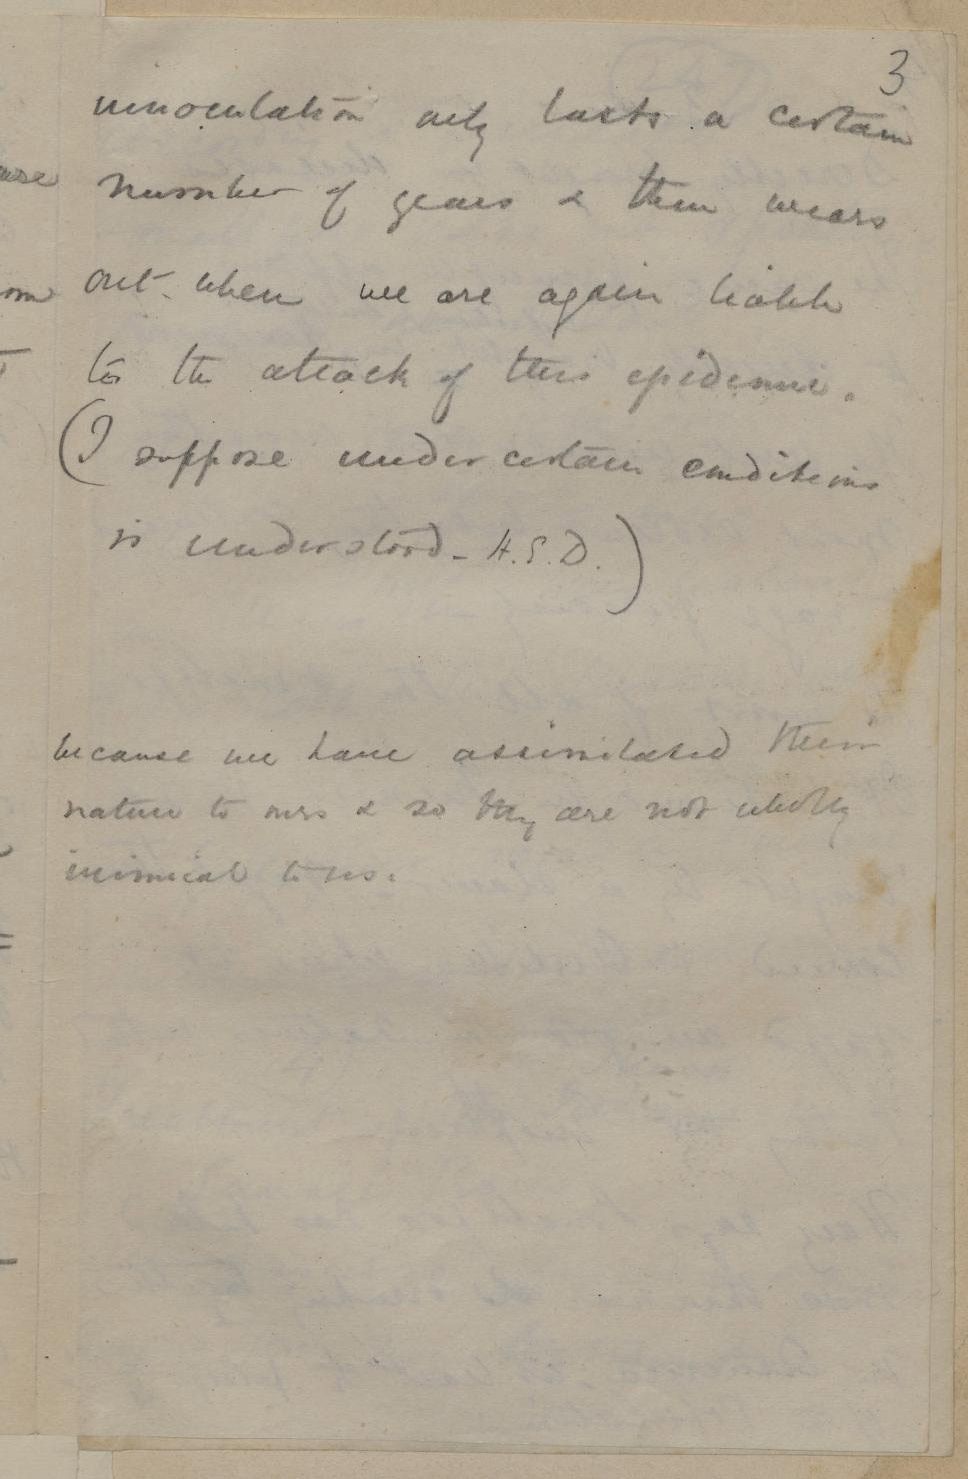 3
innoculation only lasts a certain
number of years & then wears
out. when we are again liable
to the attack of this epidemic.
(I suppose under certain conditions
is understood - H.S.D.)
because we have assimilated their
nature to ours & so they are not wholly
inimical to us.